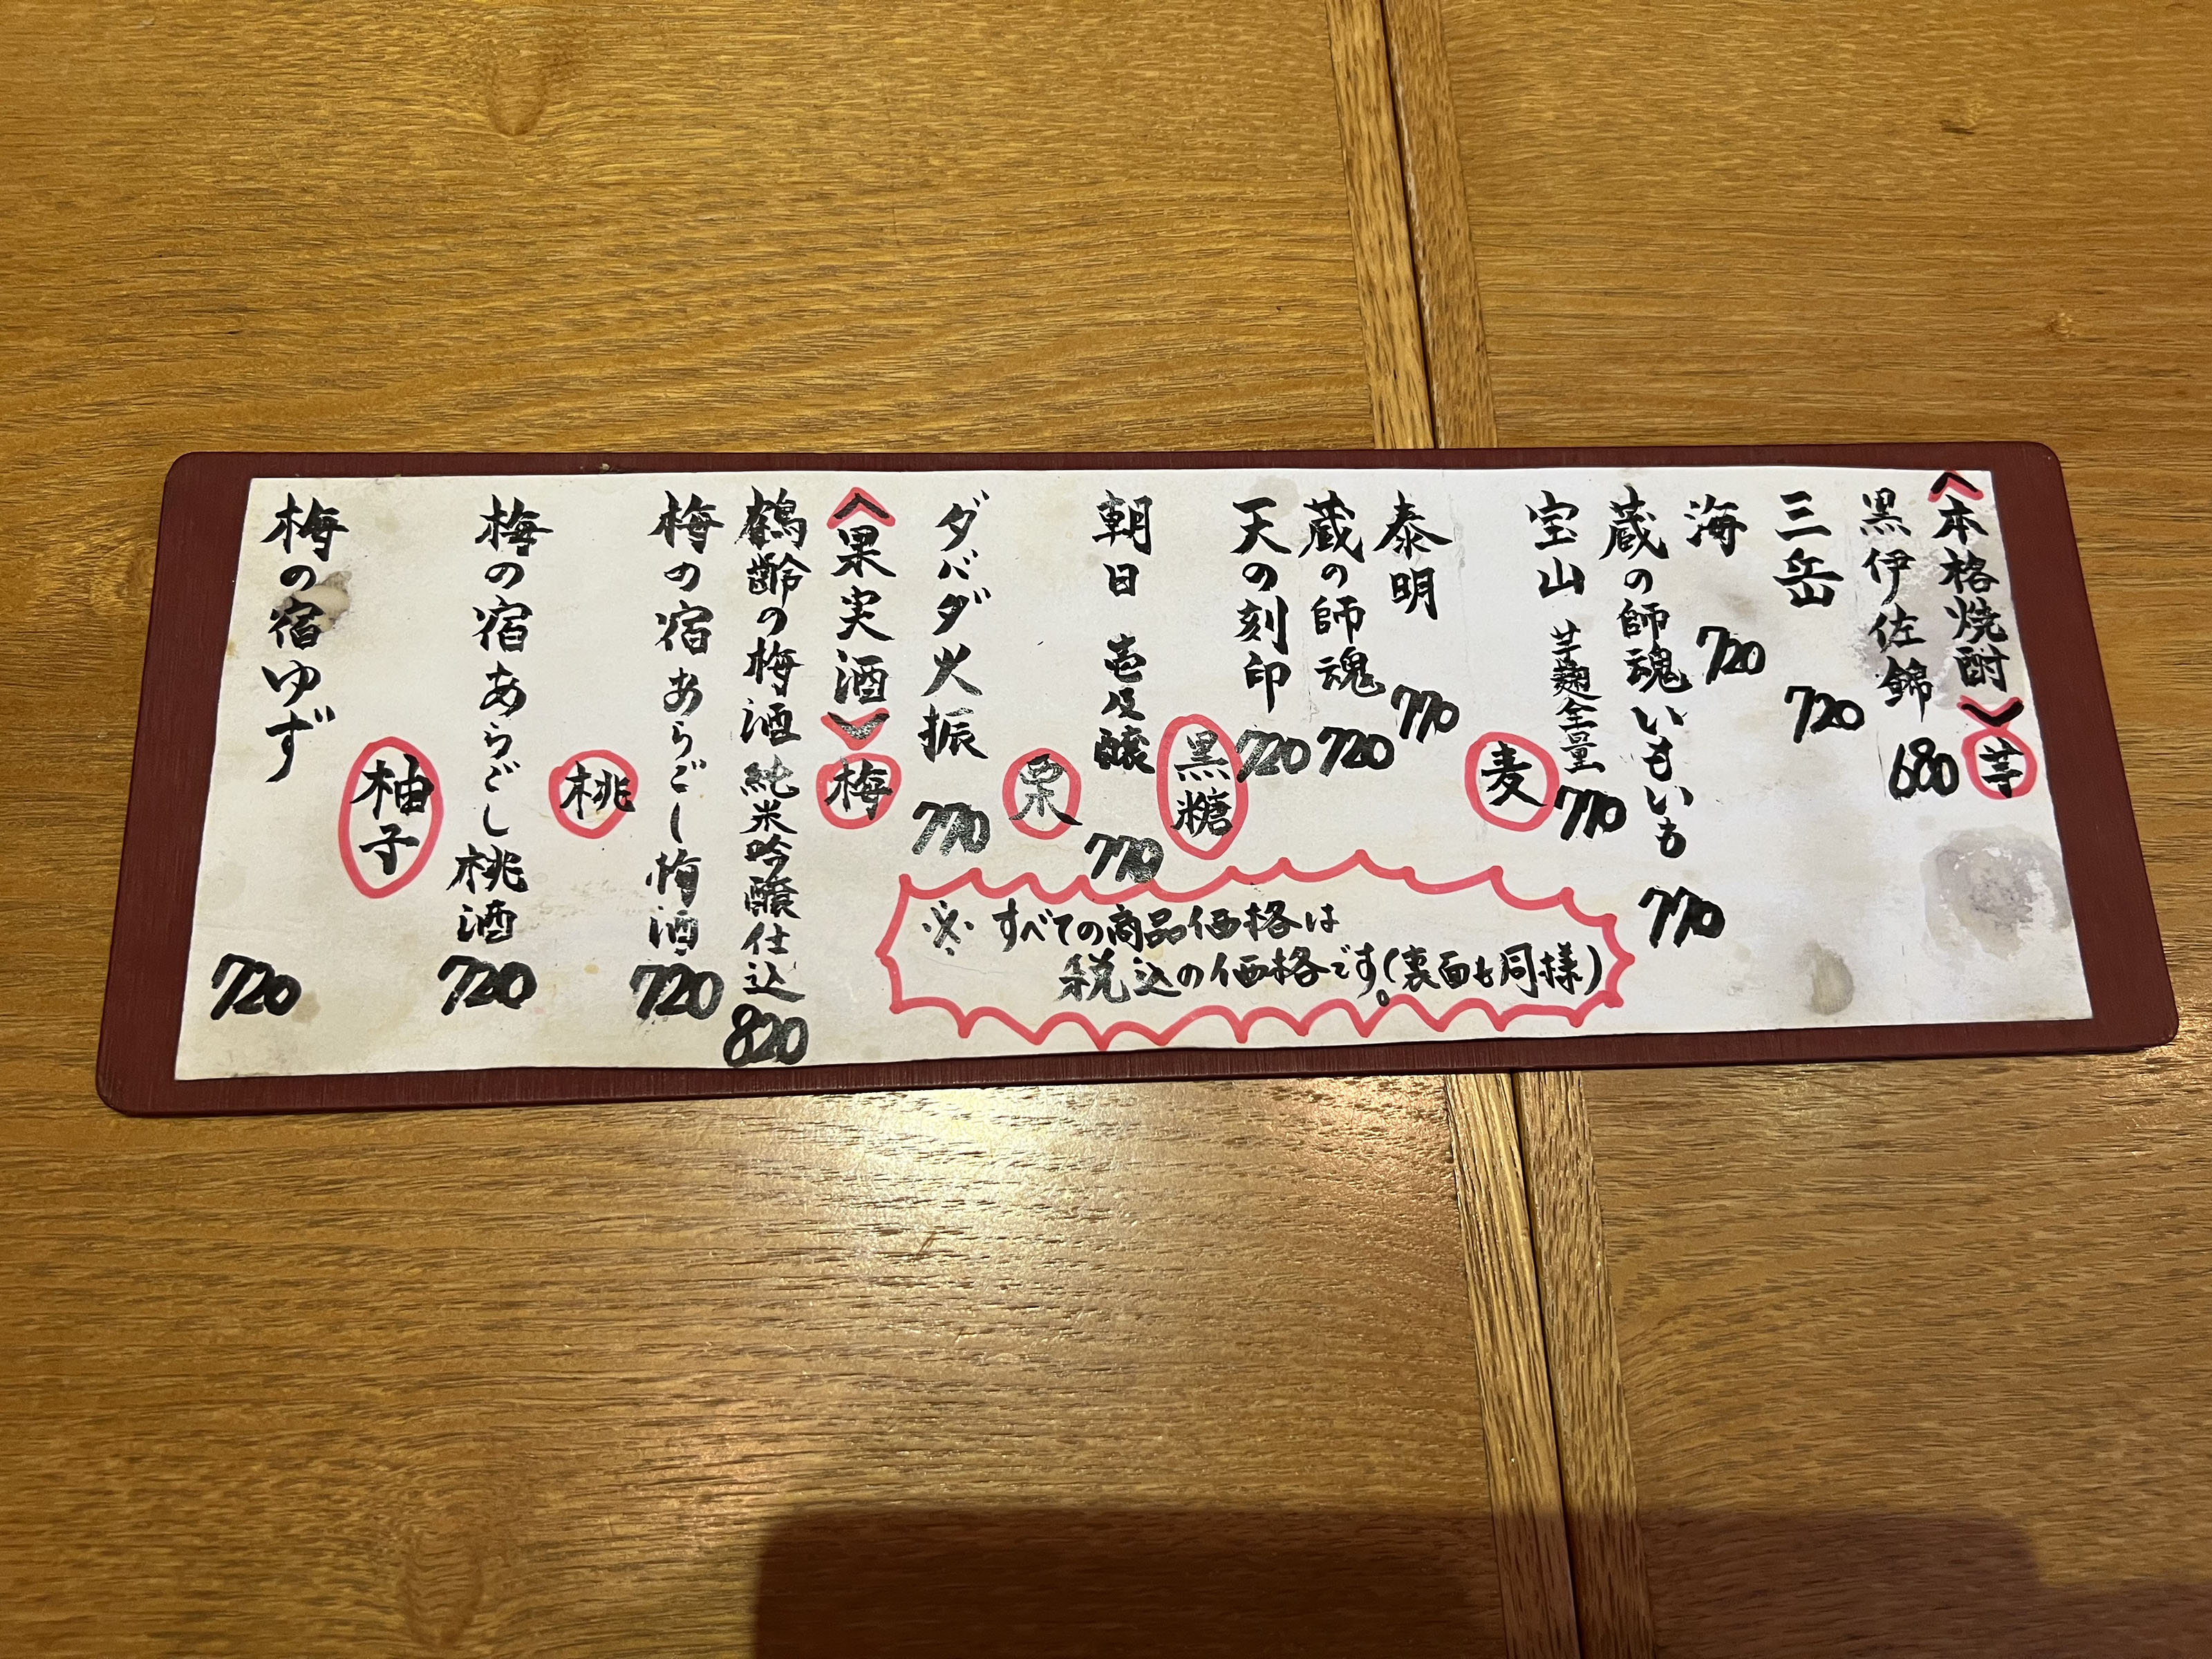 〈本格焼酎〉芋
黒伊佐錦 680
三岳 720
海 720
蔵の師魂いもいも 770
宝山 芋麹全量 770
麦
泰明 770
蔵の師魂 720
天の刻印 720
黒糖
朝日 壱乃醸 770
栗
ダバダ火振 770
〈果実酒〉梅
鶴齢の梅酒 純米吟醸仕込 820
梅の宿 あらごし梅酒 720
桃
梅の宿あらごし桃酒 720
柚子
梅の宿ゆず 720
※ すべての商品価格は
税込の価格です。(裏面も同様)